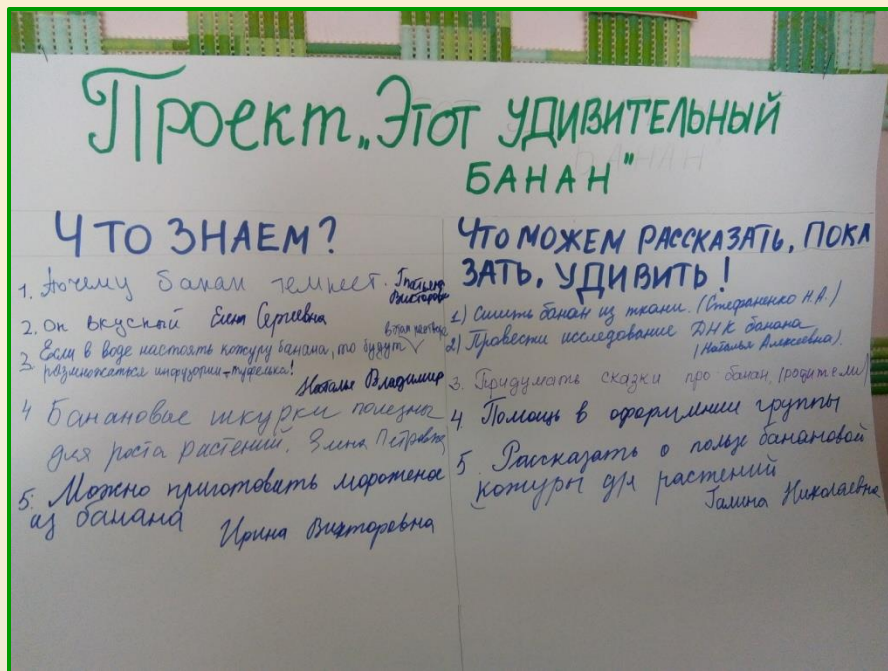 Проект „Этот УДИВИТЕЛЬНЫЙ
БАНАН"
ЧТО ЗНАЕМ?
1. Почему банан темнеет. Татьяна
Викторовна
2. Он вкусный Елена Сергеевна
в этом растворе
3. Если в воде настоять кожуру банана, то будут
размножаться инфузории-туфельки!
Наталья Владимир
4 Банановые шкурки полезны
для роста растений. Елена Петровна
5. Можно приготовить мороженое
из банана
Ирина Викторовна
ЧТО МОЖЕМ РАССКАЗАТЬ, ПОКА
ЗАТЬ, УДИВИТЬ!
1) Сшить банан из ткани. (Стефаненко Н.А.)
2) Провести исследование ДНК банана
(Наталья Алексеевна).
3. Придумать сказки про банан (родители)
4. Помощь в оформлении группы
5. Рассказать о пользе банановой
кожуры для растений
Галина Николаевна